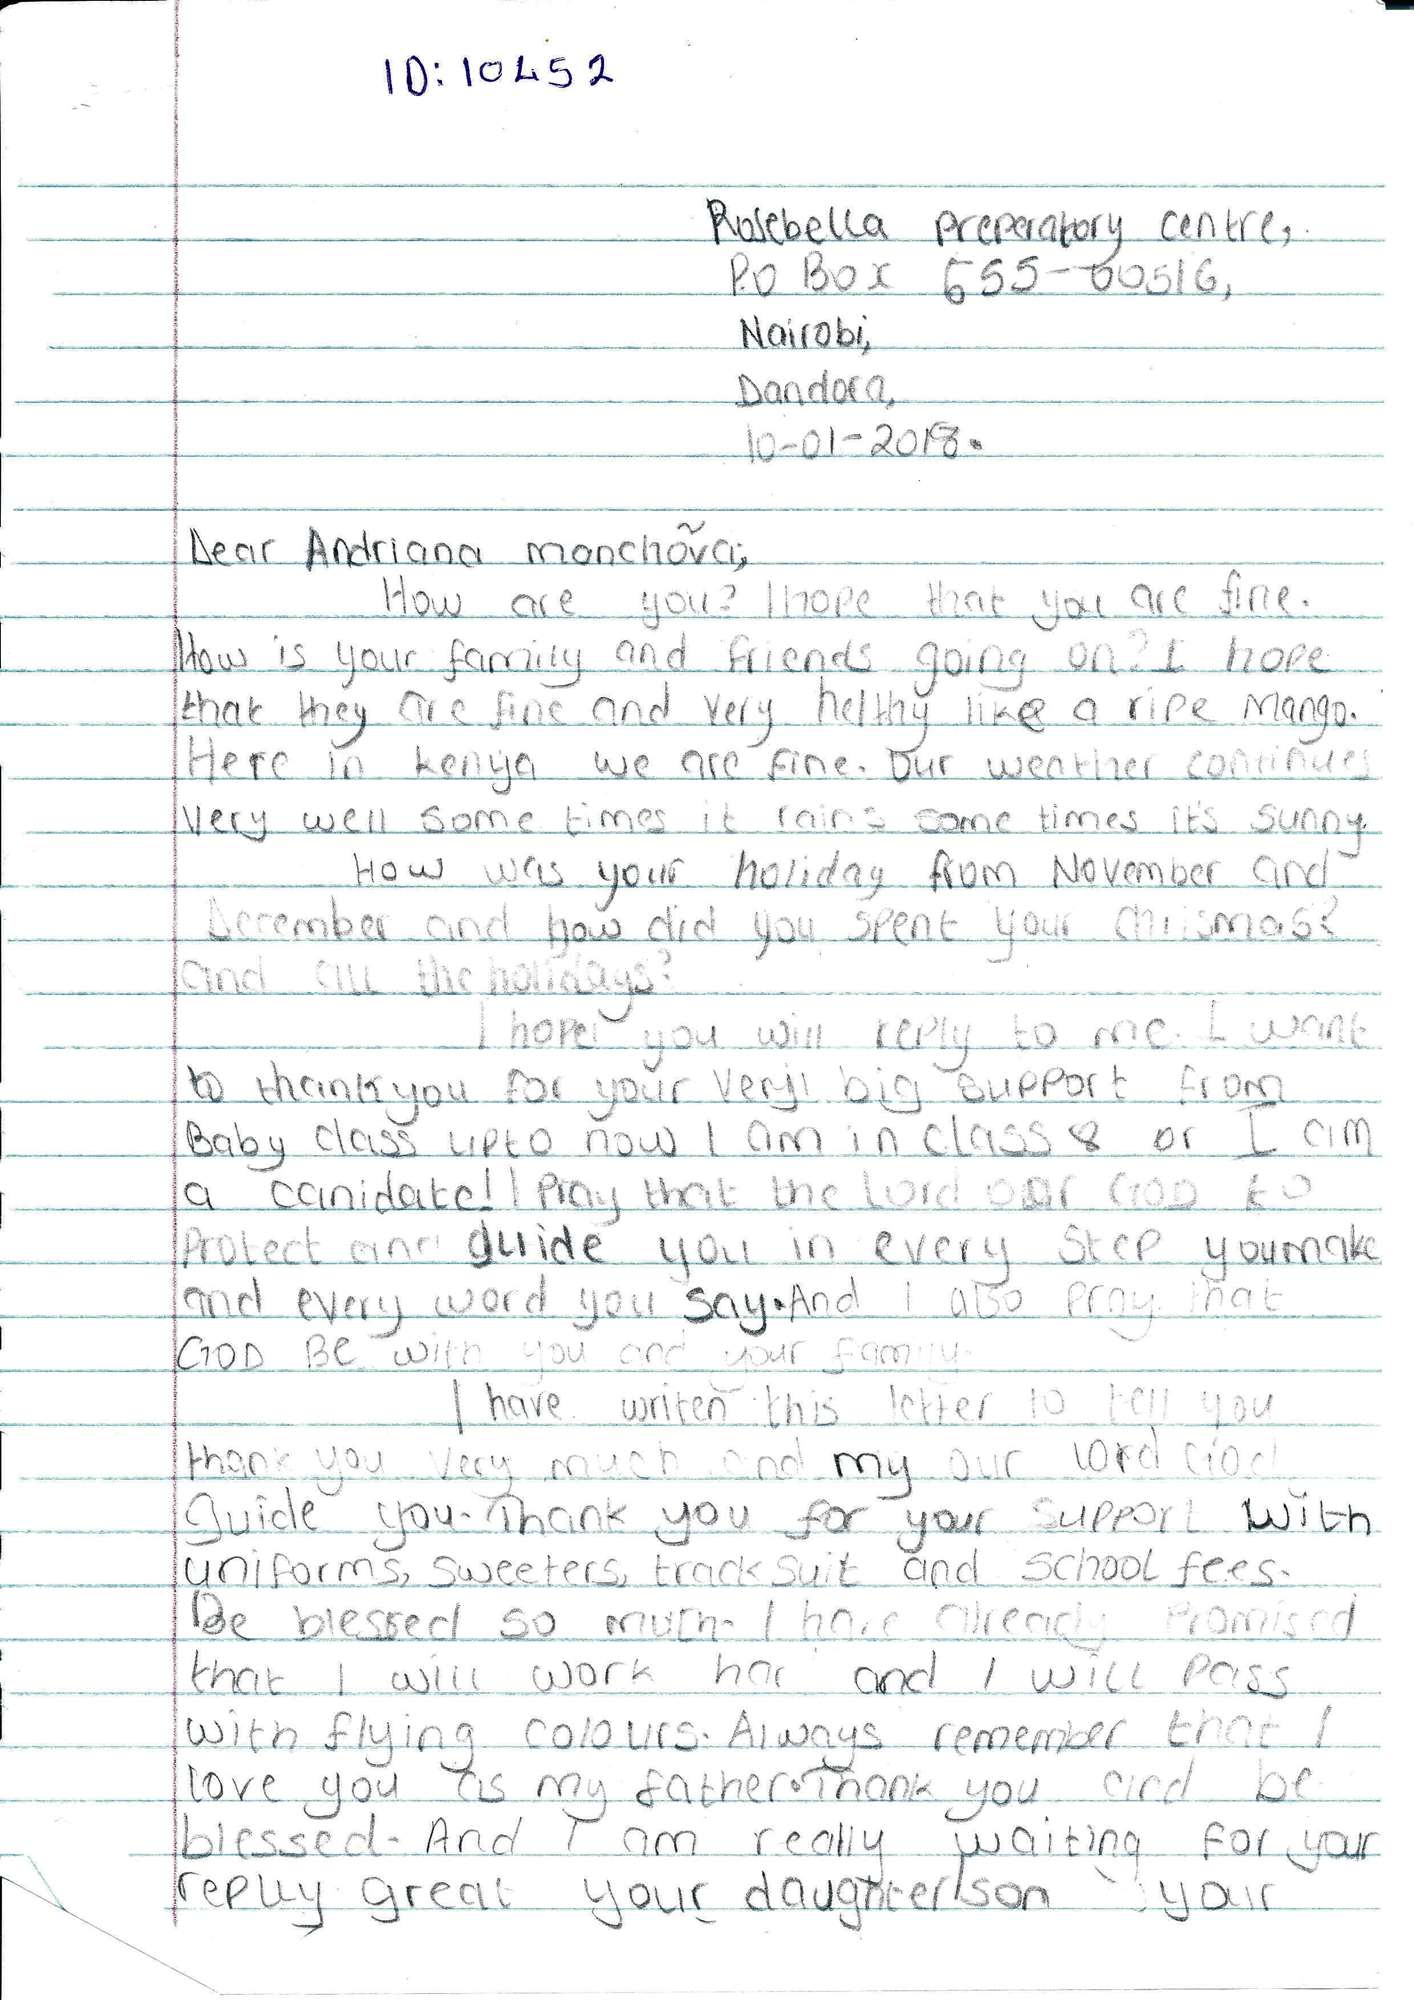 ID: 10452
Rosebella preparatory centre,
P.O Box 655-00516,
Nairobi,
Dandora,
10-01-2018.
Dear Andriana monchõva;
How are you? I hope that you are fine.
How is your family and friends going on? I hope
that they are fine and very helthy like a ripe mango.
Here in kenya we are fine. Our weather continues
very well some times it rains some times it's sunny.
How was your holiday from November and
December and how did you spent your chrismas?
and all the holidays?
I hope you will reply to me. I want
to thank you for your very big support from
Baby class upto now I am in class 8 or I am
a canidate! I pray that the Lord our GOD to
protect and guide you in every step you make
and every word you say. And I also pray that
GOD BE with you and your family.
I have writen this letter to tell you
thank you very much and my our lord God
guide you. Thank you for your support with
uniforms, sweeters, track suit and school fees.
Be blessed so much. I have already promised
that I will work har and I will pass
with flying colours. Always remember that I
love you as my father. Thank you and be
blessed. And I am really waiting for your
repluy great your daughter/son your